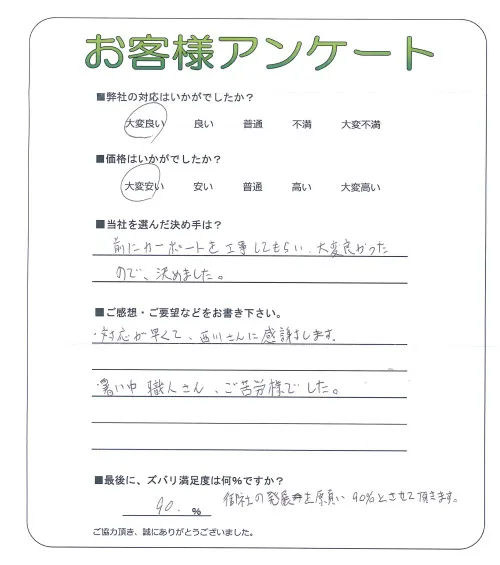 お客様アンケート
■弊社の対応はいかがでしたか？
大変良い 良い 普通 不満 大変不満
■価格はいかがでしたか？
大変安い 安い 普通 高い 大変高い
■当社を選んだ決め手は？
前にカーポートを工事してもらい、大変良かった
ので、決めました。
■ご感想・ご要望などをお書き下さい。
・対応が早くて、西川さんに感謝します。
・暑い中 職人さん、ご苦労様でした。
■最後に、ズバリ満足度は何%ですか？
90. %
御社の発展を願い 90%とさせて頂きます。
ご協力頂き、誠にありがとうございました。